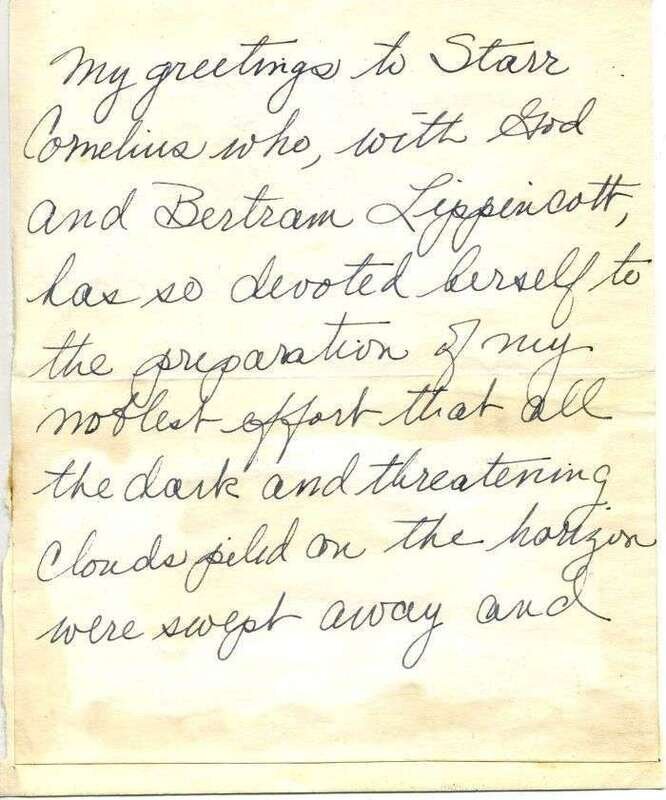 My greetings to Starr
Cornelius who, with God
and Bertram Lippincott,
has so devoted herself to
the preparation of my
noblest effort that all
the dark and threatening
clouds piled on the horizon
were swept away and